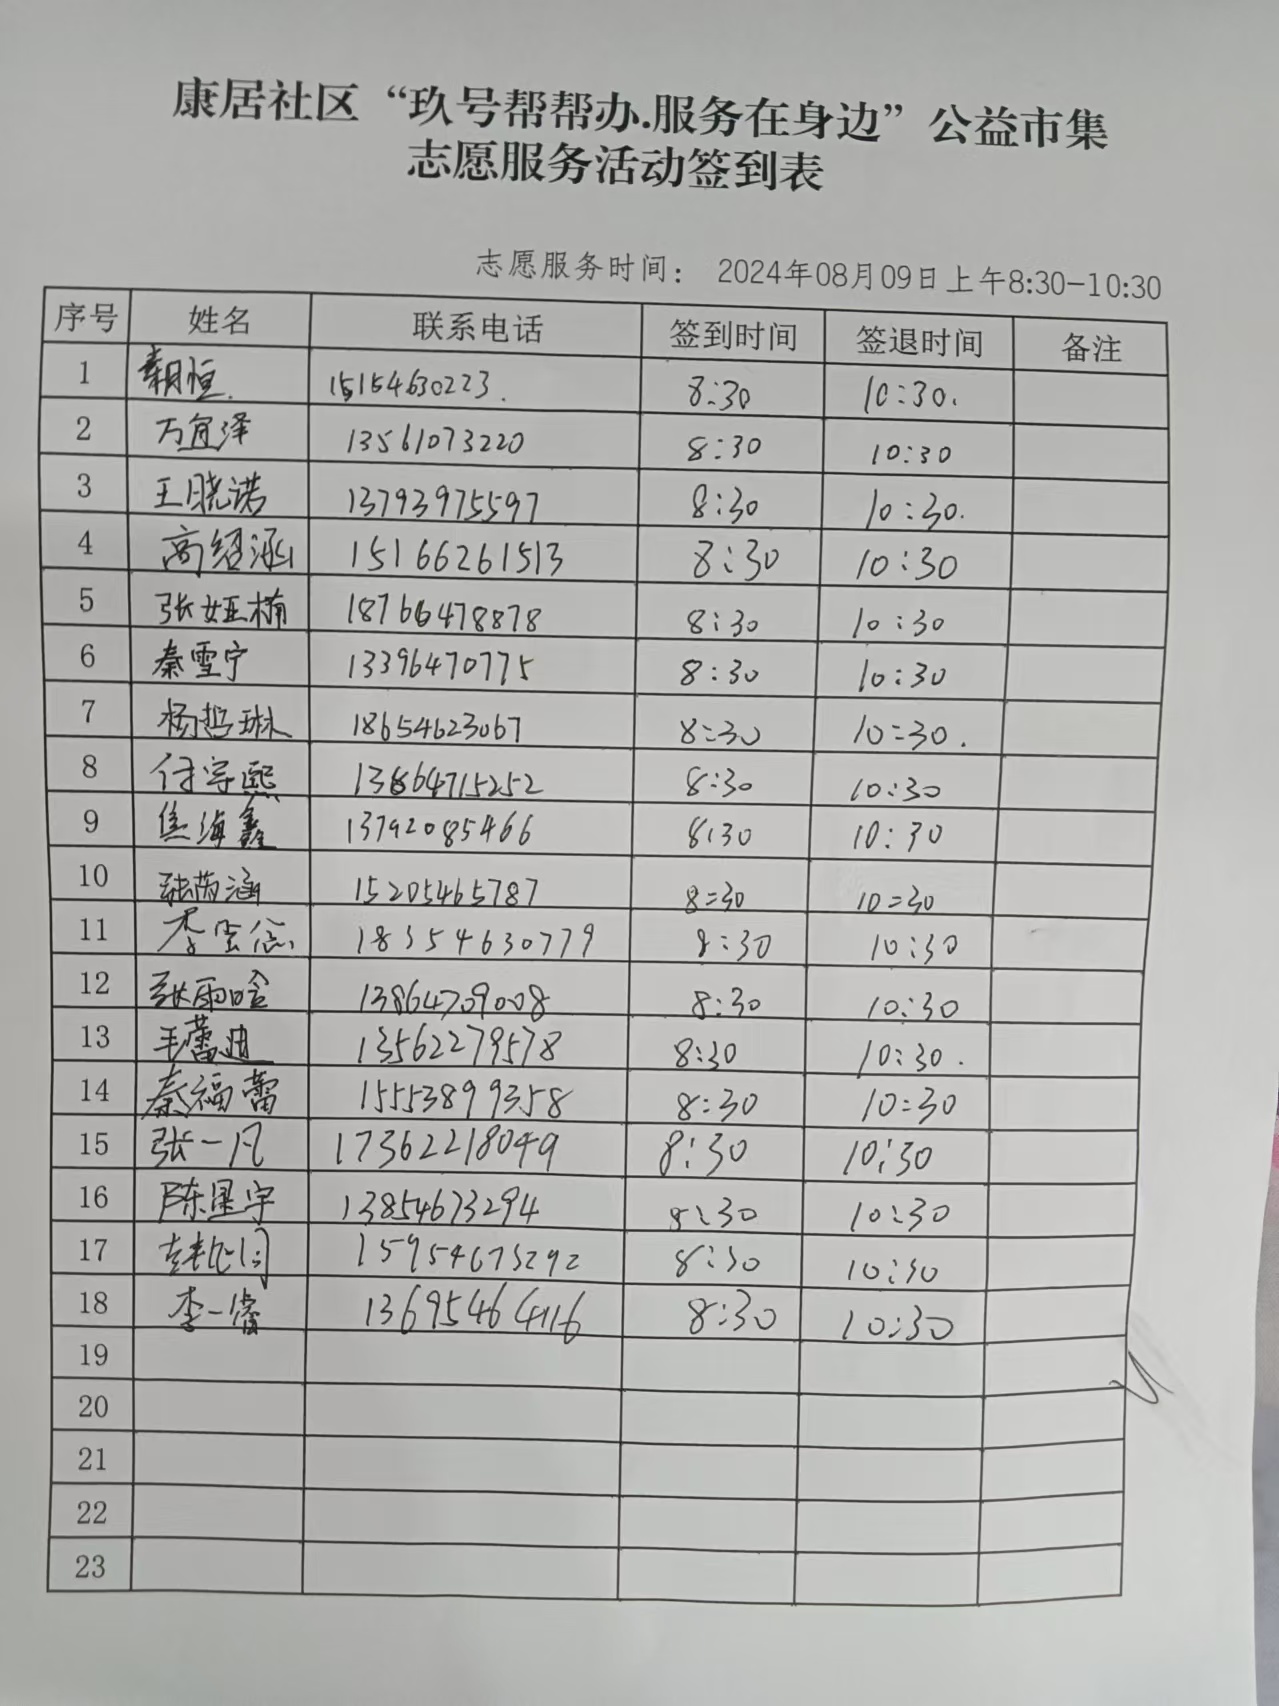 康居社区“玖号帮帮办.服务在身边”公益市集
志愿服务活动签到表
志愿服务时间： 2024年08月09日上午8:30-10:30
序号 姓名 联系电话 签到时间 签退时间 备注
1 15154630223. 8:30 10:30.
2 万宜泽 13561073220 8:30 10:30
3 王晓诺 13793975597 8:30 10:30.
4 高绍涵 15166261513 8:30 10:30
5 张娅楠 18766478878 8:30 10:30
6 秦雪宁 13396470775 8:30 10:30
7 杨哲琳 18654623067 8:30 10:30.
8 付宇熙 13864715252 8:30 10:30
9 焦海鑫 13792085466 8:30 10:30
10 张芮涵 15205465787 8:30 10:30
11 18354630779 8:30 10:30
12 张雨晗 13864709008 8:30 10:30
13 毛蕾迪 13562279578 8:30 10:30.
14 秦福蕾 15553899358 8:30 10:30
15 张一凡 17362218049 8:30 10:30
16 陈星宇 13854673294 8:30 10:30
17 15954673292 8:30 10:30
18 李一睿 13695464116 8:30 10:30
19
20
21
22
23